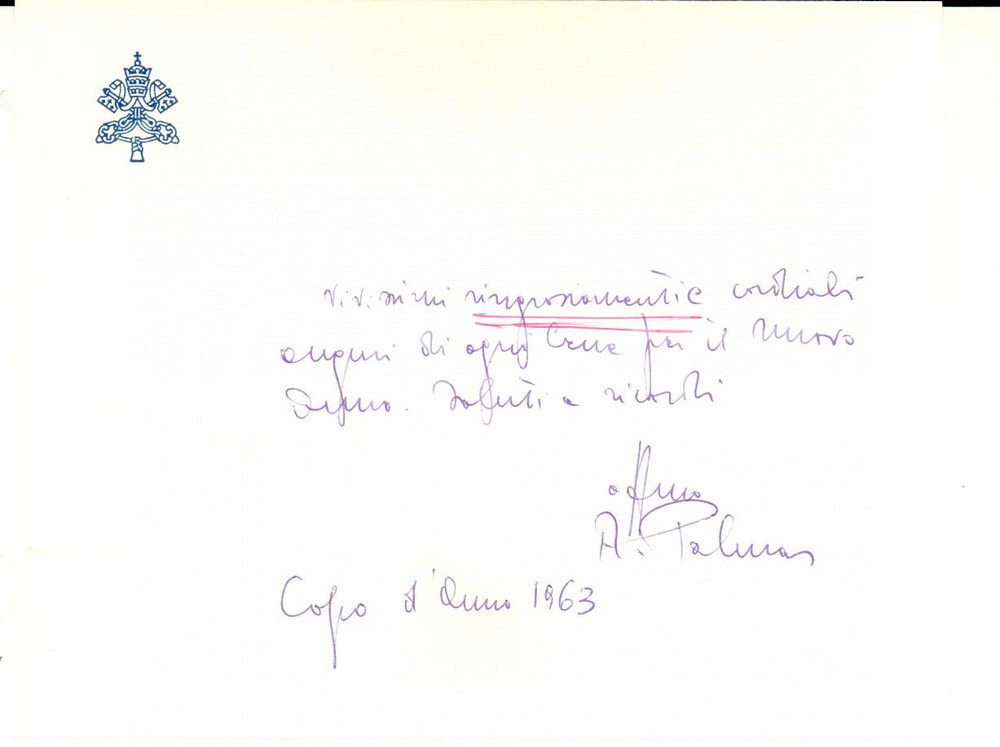 Vivissimi ringraziamenti e cordiali
auguri di ogni bene per il nuovo
Anno. Saluti e ricordi
affmo
A. Palmas
Capo d'Anno 1963